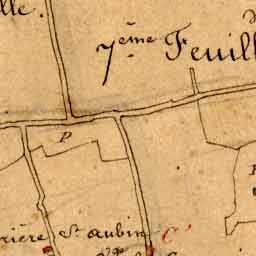 lle.
7ème Feuill
P
rière St aubin C